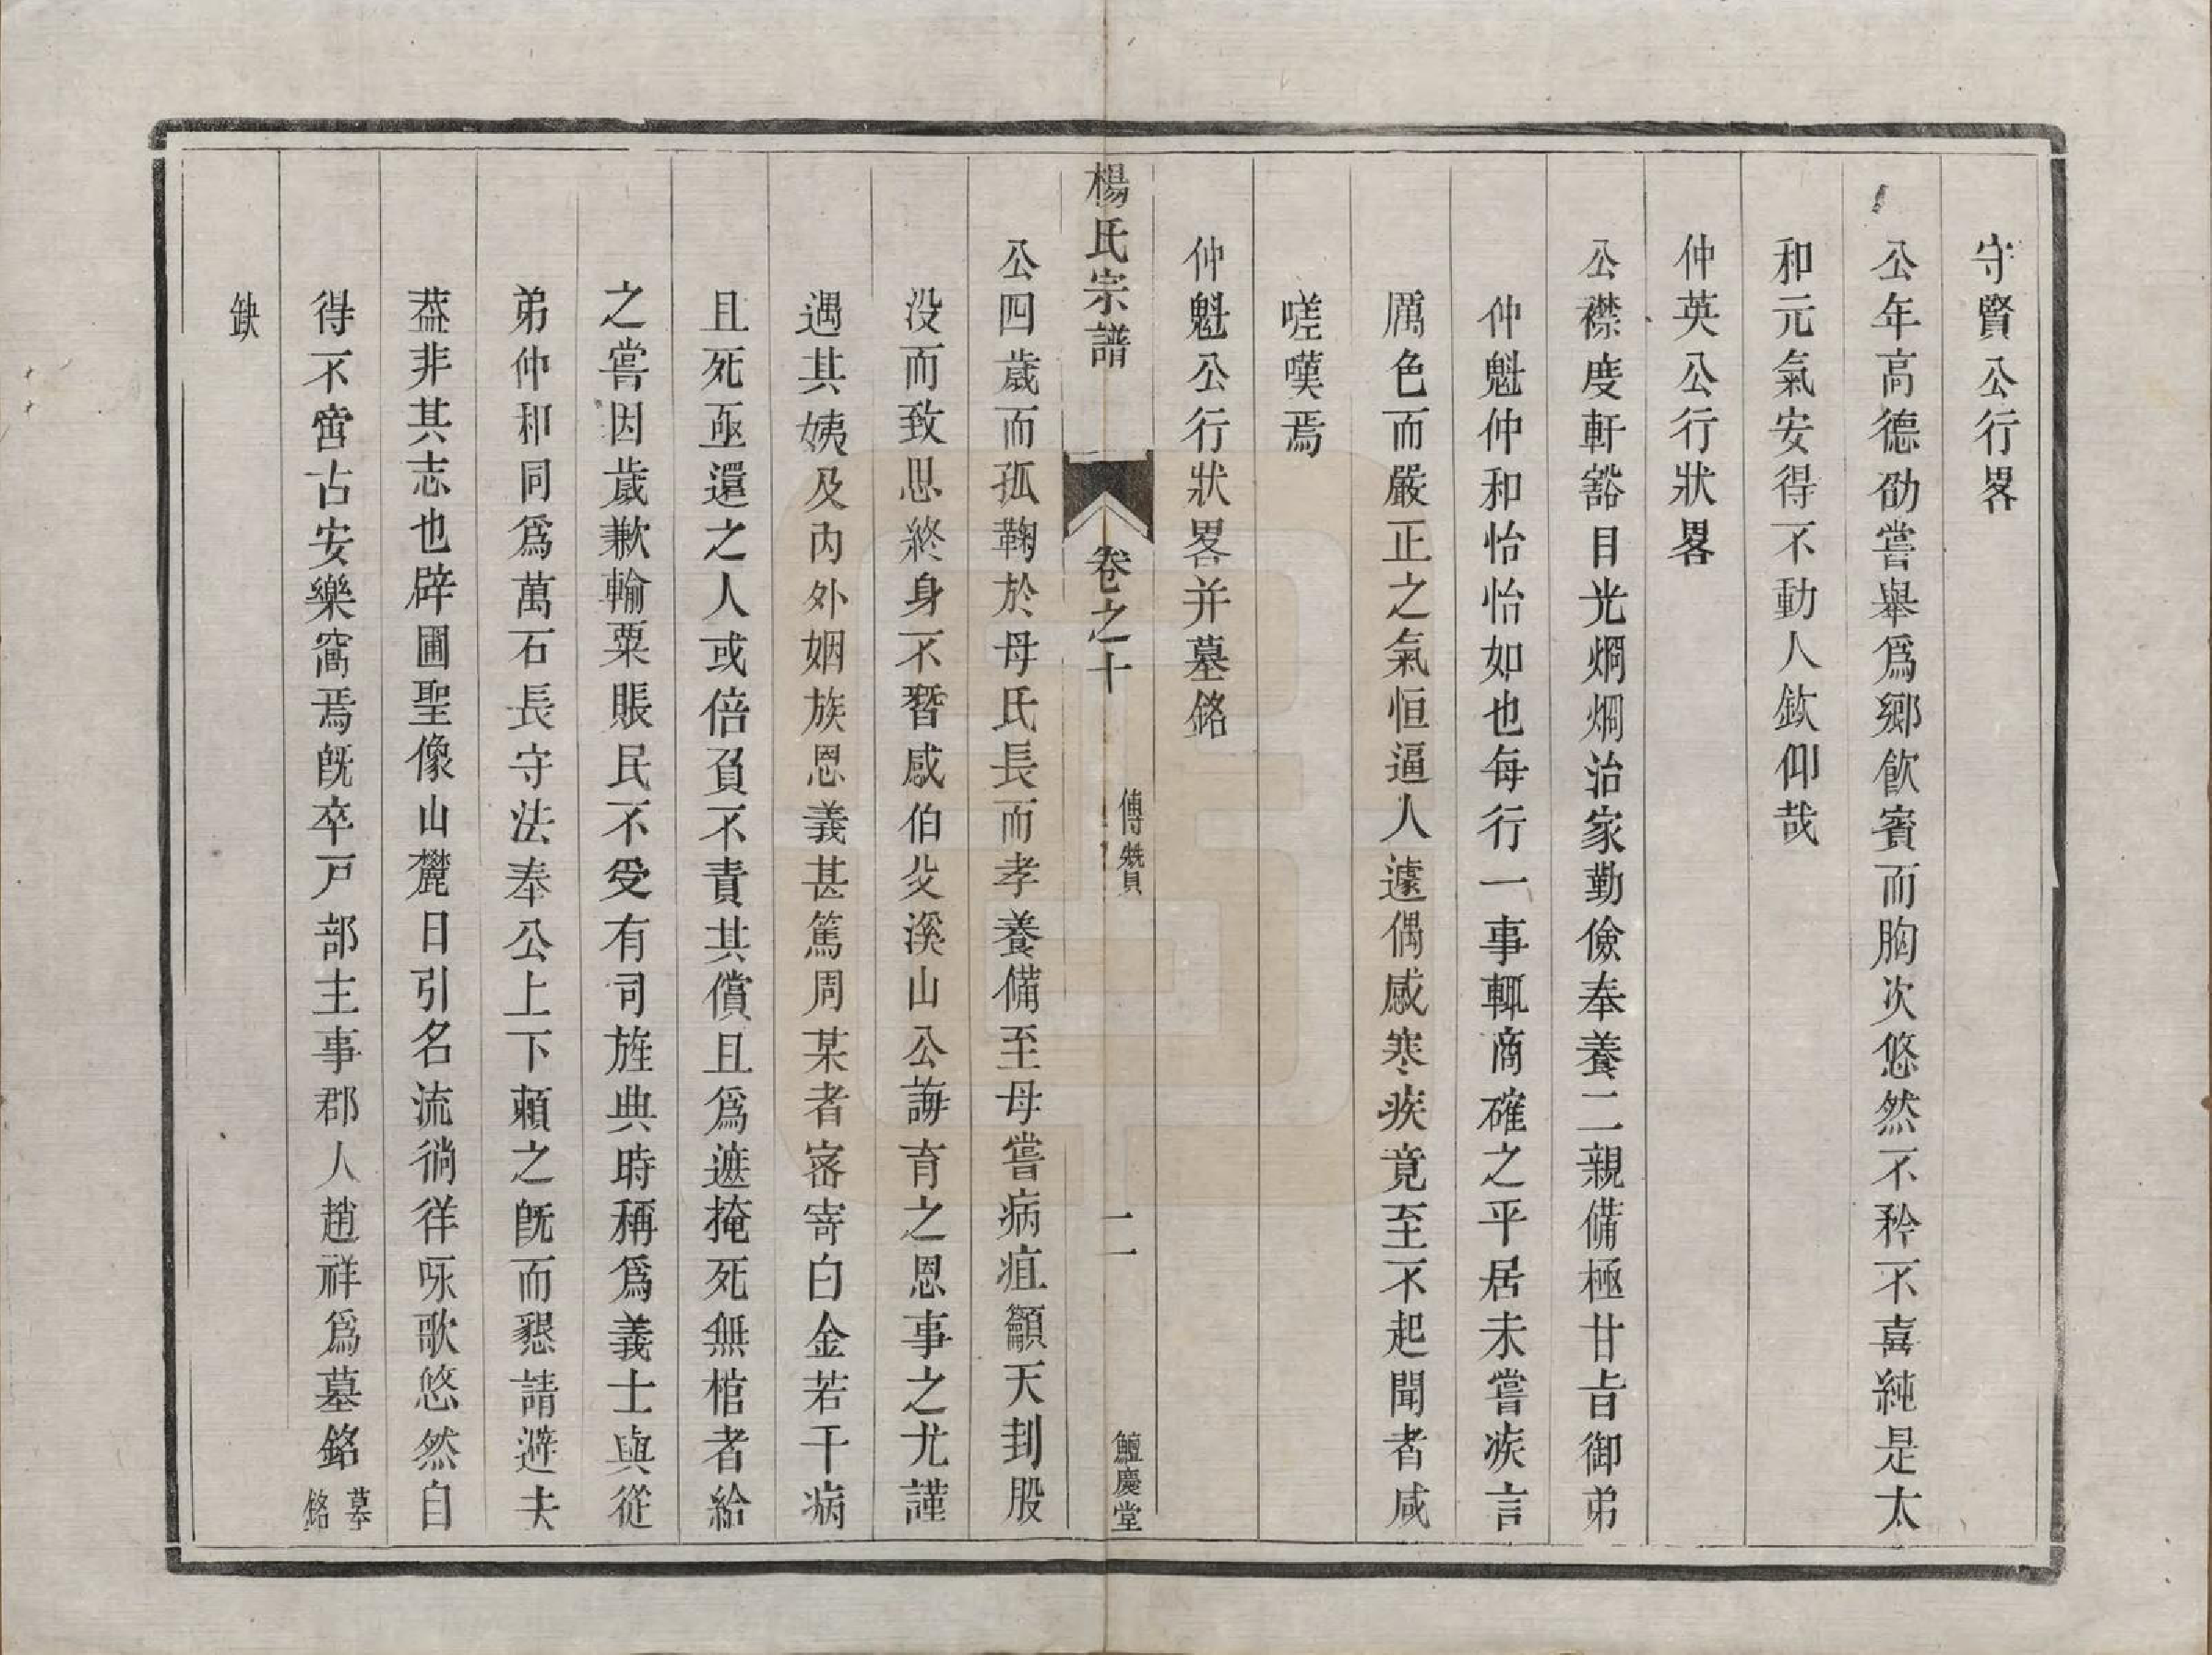 守賢公行畧
公年高德劭嘗舉爲鄉飲賓而胸次悠然不矜不喜純是太
和元氣安得不動人欽仰哉
仲英公行狀畧
公襟度軒豁目光烱烱治家勤儉奉養二親備極甘旨御弟
仲魁仲和怡怡如也每行一事輒商確之平居未嘗疾言
厲色而嚴正之氣恒逼人遽偶感寒疾竟至不起聞者咸
嗟嘆焉
仲魁公行狀畧并墓銘
楊氏宗譜 卷之十 傳贊 二 鱣慶堂
公四歲而孤鞠於母氏長而孝養備至母嘗病疽籲天刲股
没而致思終身不暫感伯父溪山公誨育之恩事之尤謹
遇其姨及內外姻族恩義甚篤周某者窑寄白金若干病
且死亟還之人或倍負不責其償且爲遮掩死無棺者給
之嘗因歲歉輸粟賑民不受有司旌典時稱爲義士與從
弟仲和同爲萬石長守法奉公上下賴之旣而懇請避去
葢非其志也辟圃聖像山麓日引名流徜徉咏歌悠然自
得不啻古安樂窩焉旣卒戸部主事郡人趙祥爲墓銘墓銘
缺